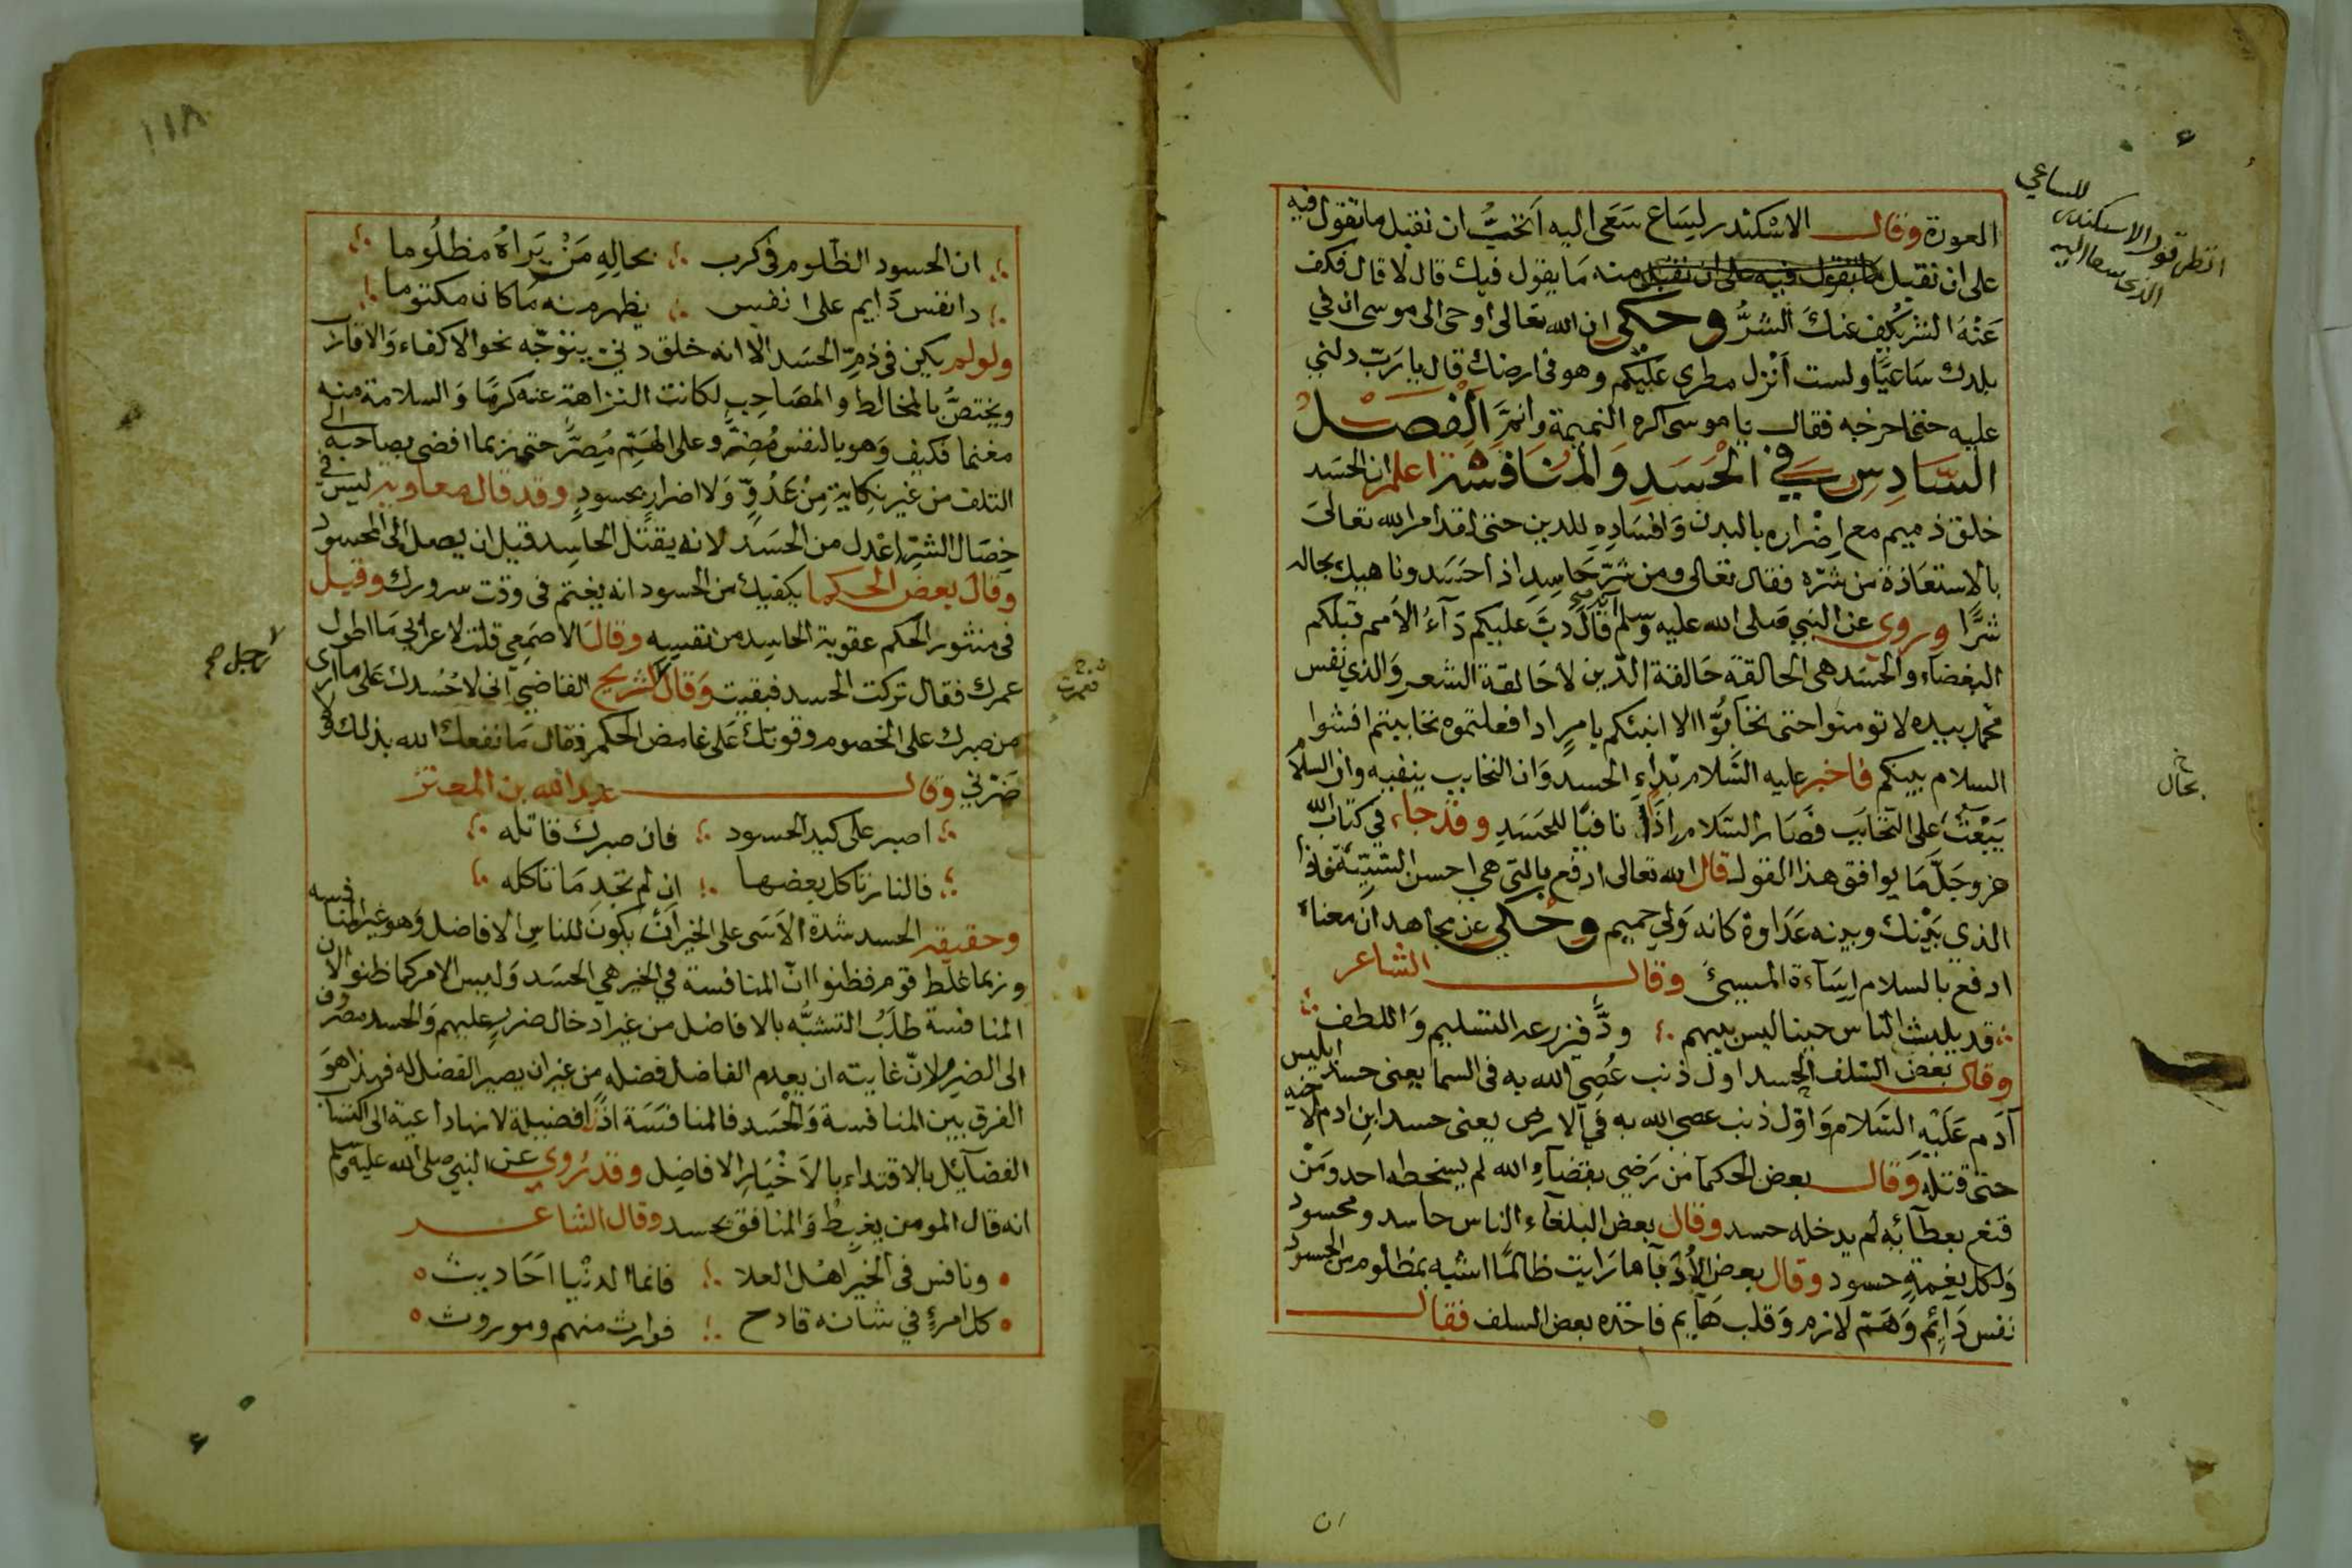 العورة وقال الاسكندر لِسَاع سَعَى اليه اتحبُّ ان نقبل ما تقول فيه
على ان نقبل ما يقول فيه على ان نقبل منه مَا يقول فيك قال لا قال فكف
عَنْهُ الشر يكف عنكَ الشرُّ وحكى ان الله تعالى اوحى الى موسى ان في
بلدك سَاعيًا ولست اُنْزل مطرى عليكم وهو فى ارضك قال يا رَبّ دلنى
عليه حتى اخرجه فقال يا موسى اكره النميمة وانمّ الفصل
السَّادِس في الحَسَدِ وَالمُنَافَسَة اعلم ان الحسَد
خلق ذميم مع اِضْراره بالبدن وَافسَادِهِ للدين حتى لقد امر الله تعالى
بالاستعَاذة من شرّه فقال تعالى ومن شرّ حَاسِدٍ اذا حَسَد وناهيك بحاله
شرًّا وروى عن النبي صلى الله عليه وسلم انه قال دبَّ عليكم دَآءُ الأمم قبلكم
البغضاء والحسَد هى الحالقة حَالقة الدّين لا حَالقة الشعر وَالذي نفس
محمد بيده لا تومنوا حتى تحابُّوا الا انبئكم بامرٍ اذا فعلتموه تحاببتم افشوا
السلام بينكم فاخبر عليه السَّلام بدآءِ الحسد وَان التحابب ينفيه وان السلام
يَبْعَثُ على التحابَب فصَار السَّلام اذًا نافيًا للحَسَدِ وقد جاء في كتاب الله
عز وجَلّ مَا يوافق هذا القول قال الله تعالى ادفع بالتي هي احسن السّيّئة فاذا
الذي بَيْنك وبينه عَدَاوة كانه وَلي حميم وحكى عن مجاهد ان معناه
ادفع بالسلام اِسَآءة المسيئ وقال الشاعر
قد يلبث الناس حينا ليس بينهم ودٌّ فيزرعه التسليم وَاللطف
وقال بعض السّلف الحسد اول ذنب عُصي الله به فى السما يعنى حسد ابليس
آدَم عَلَيْهِ السَّلام وَاوّل ذنب عصى الله به في الارض يعنى حسد ابن ادم لاخيه
حتى قتله وَقال بعض الحكمآ من رَضي بقضآءِ الله لم يسخطه احد ومَنْ
قنع بعطآئِهِ لم يدخله حسد وقال بعض البلغاء الناس حاسد ومحسود
وَلكل نِعْمةٍ حسود وقال بعض الأُدَبآء ما رَايت ظالمًا اشبه بمظلوم من الحسود
نفس دَآئِم وَهَمّ لازم وَقلب هَآيم فاخذه بعض السلف فقال
ان
انظر قول الاسكندر للساعي
الذى سعا اليه
بحال
١١٨
ان الحسود الظلوم فى كرب بحالِهِ مَنْ يَرَاهُ مظلُوما
ذا نفس دَايم على نفس يظهر منه مَا كان مكتوما
ولو لم يكن فى ذمِّ الحسَد الا انه خلق دنى يتوجّه نحو الاكفاء وَالاقارب
ويختصُّ بالمخالط والمصَاحِب لكانت النزاهة عنه كرمًا وَالسلامة منه
مغنما فكيف وَهو بالنفس مُضِرّ وعلى الهَمّ مُصِرٌّ حتى ربما افضى بصاحبه الى
التلف من غير نِكاية مِنْ عَدُوّ وَلا اضرار بحسودٍ وقد قال معاوية ليس في
خِصَال الشّرِّ اعْدل من الحسَد لانه يقتل الحاسِد قبل ان يصل الى المحسود
وقال بعض الحكما يكفيك من الحسود انه يغتم فى وقت سرورك وقيل
فى منثور الحكم عقوبة الحاسِد من نفسِه وقال الاصمَعي قلت لاعرابي مَا اطول
عمرك فقال تركت الحسد فبقيت وَقال شريح القاضيّ انى لاحسدك عَلى ما ارى
من صبرك على الخصوم وقوتك عَلى غامض الحكم فقال مَا نفعك الله بذلك ولا
ضَرّني وقال عبد الله بن المعتز
اصبر على كيد الحسود فان صبرك قاتله
فالنار تاكل بعضها ان لم تجد مَا تاكله
وحقيقة الحسد شدة الاَسَى على الخير اَن يكون للناس الافاضل وَهو غير المنافسه
وربما غلط قوم فظنوا انّ المنافسة في الخير هي الحسَد وَليس الامر كما ظنوا لان
المنافسة طلَبُ التشبُّه بالافاضل من غير ادخال ضررٍ عليهم وَالحسد مصروف
الى الضرر لانّ غايته ان يعدم الفاضل فضله من غير ان يصير الفضل له فهذا هوَ
الفرق بين المنافسة وَالحْسَد فالمنافسَة اذًا فضيلة لانها داعية الى اكتساب
الفضآئل بالاقتداء بالاَخْيَارِ الافاضِل وقد رُوي عن النبي صلى الله عليه وسلم
انه قال المومن يغبِطُ وَالمنافق يحسد وقال الشاعر
ونافس فى الخيرَ اهْل العلا فانما الدنْيا اَحَاديث
كل امرئٍ في شانه قادح فوارث منهم وموروث
لرجل صح